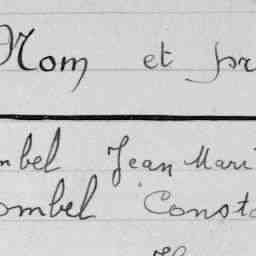 Nom et pr
mbel Jean Mari
ombel Consta